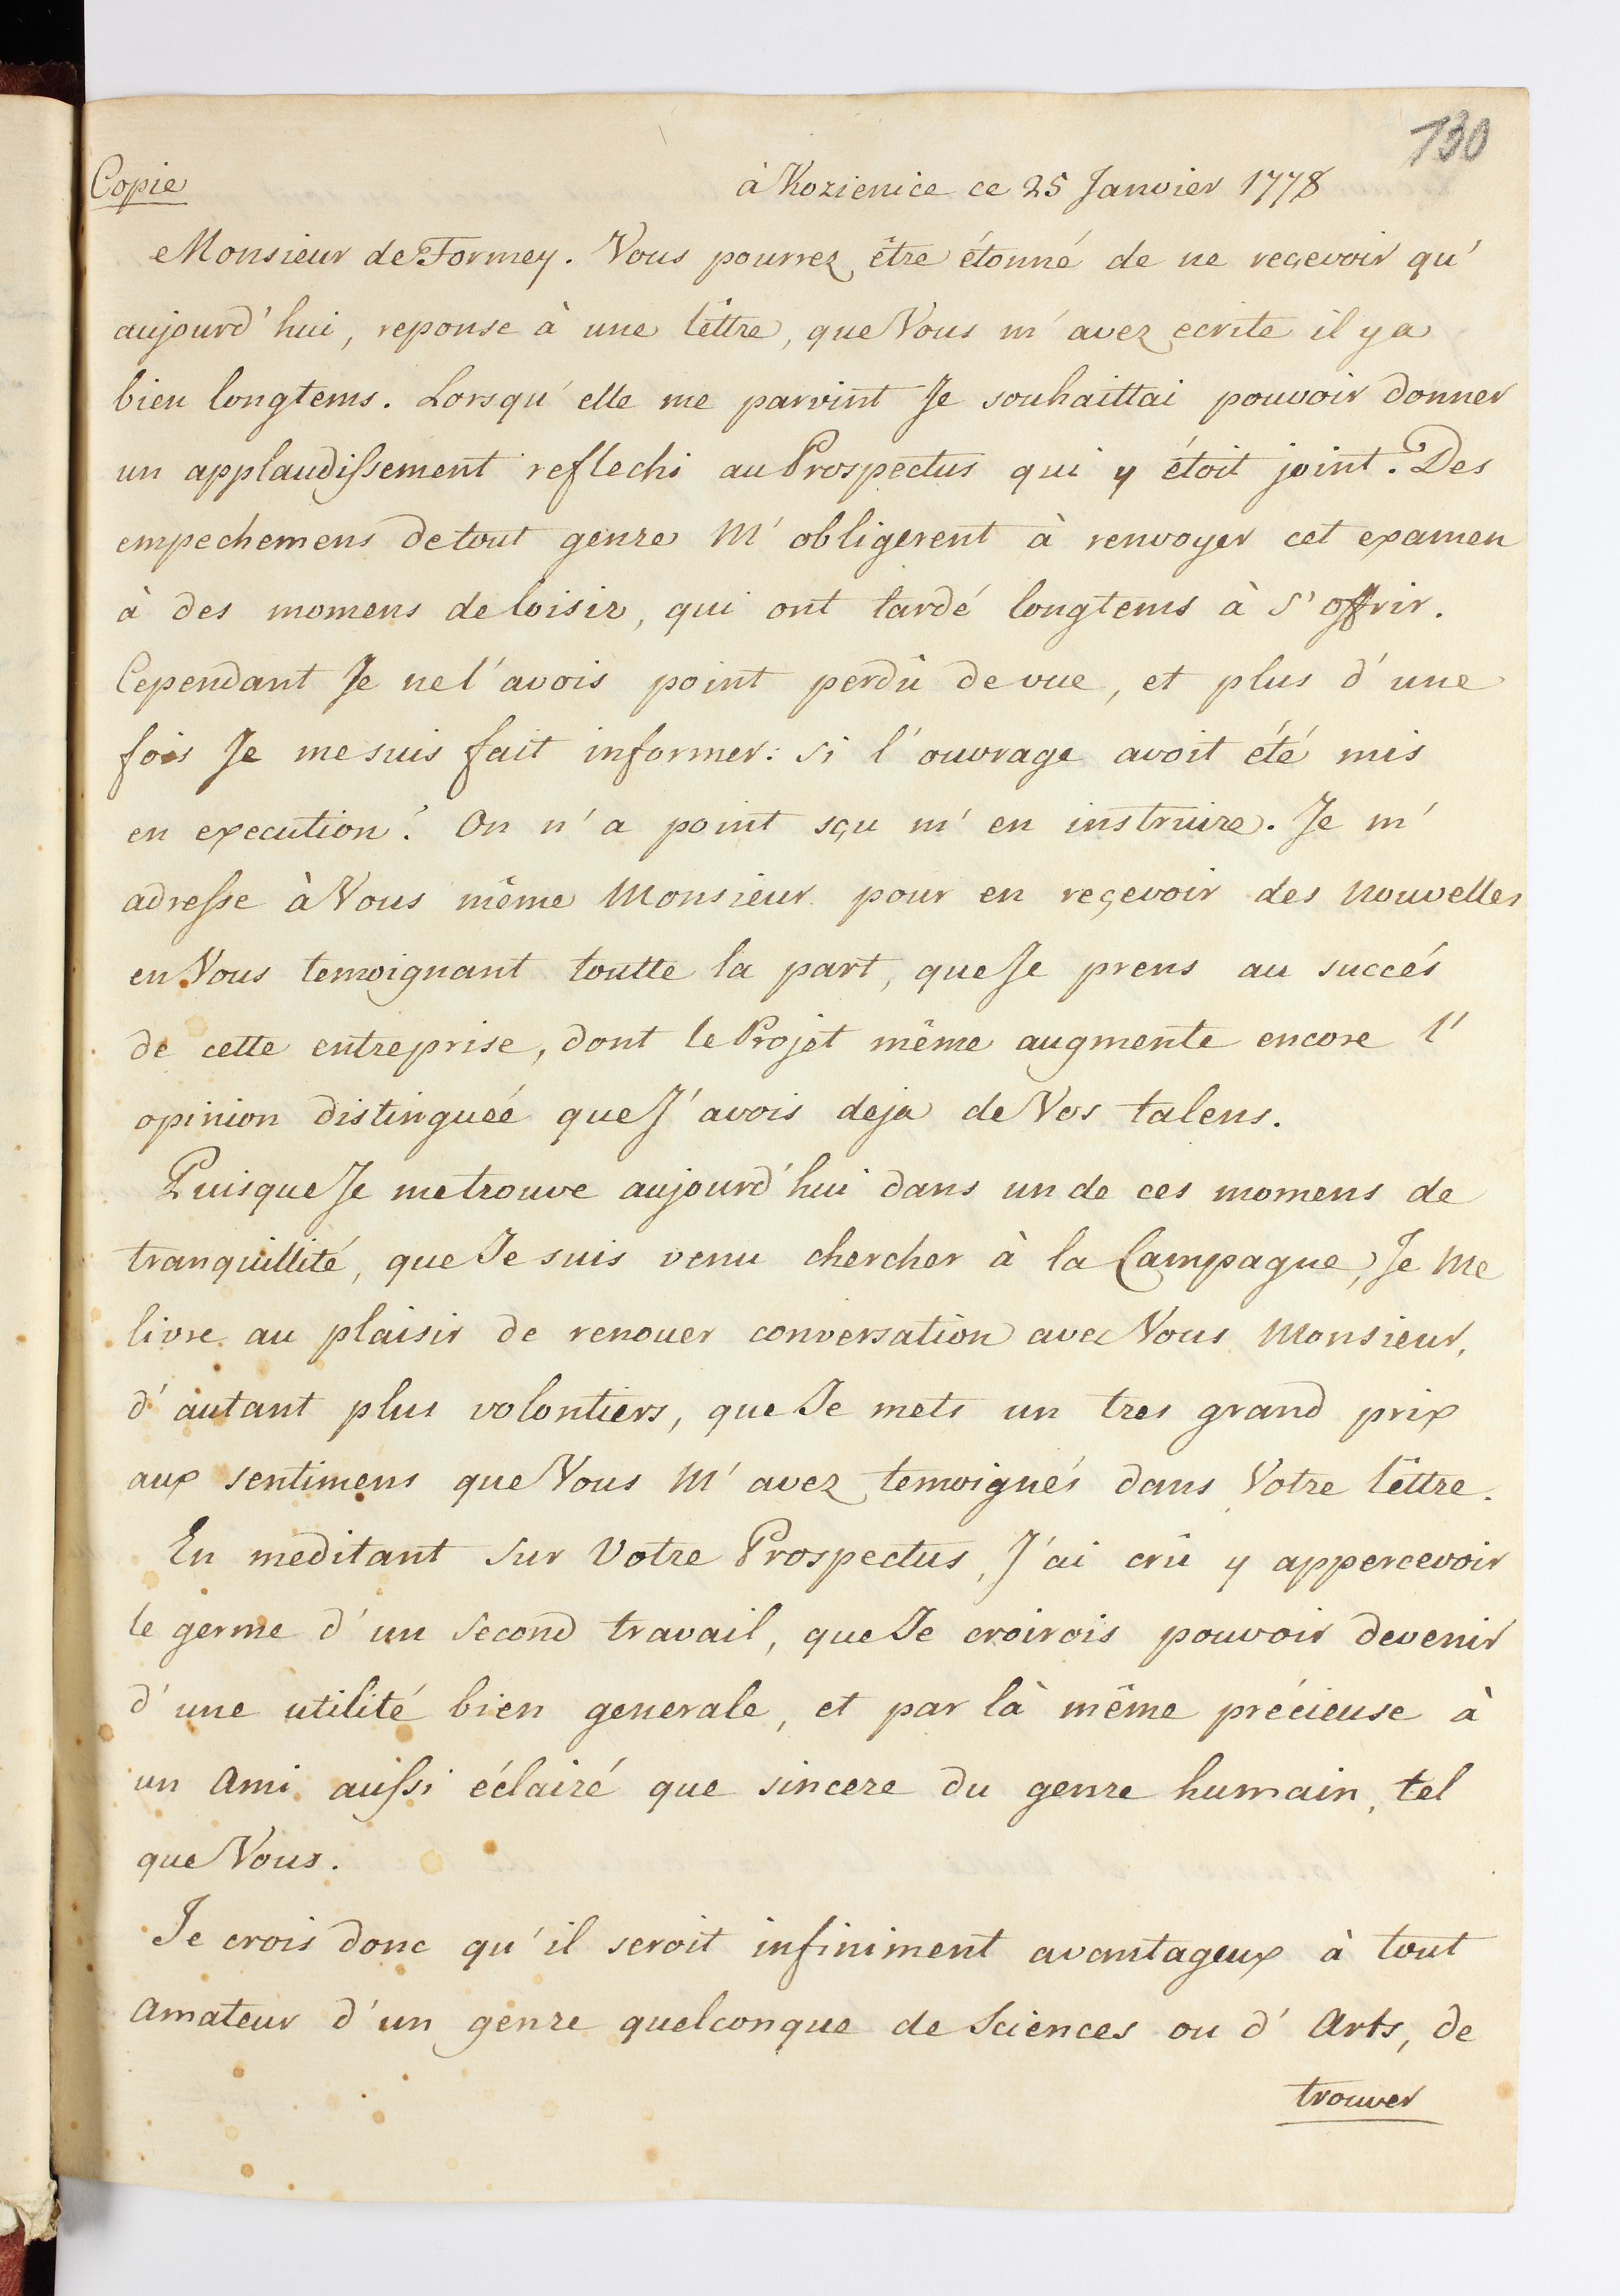 130
Copie
à Kozienice ce 25 Janvier 1778
Monsieur de Formey. Vous pourrez être étonné de ne reçevoir qu'
aujourd'hui, reponse à une lêttre, que Vous m'avez ecrite il y a
bien longtems. Lorsqu'elle me parvint Je souhaittai pouvoir donner
un applaudissement reflechi au Prospectus qui y étoit joint. Des
empechemens de tout genre M'obligerent à renvoyer cet examen
à des momens de loisir, qui ont tardé longtems à s'offrir.
Cependant Je ne l'avois point perdû de vue, et plus d'une
fois Je me suis fait informer: si l'ouvrage avoit été mis
en execution? On n'a point sçu m'en instruire. Je m'
adresse à Vous même Monsieur pour en reçevoir des Nouvelles
en Vous temoignant toutte la part, que Je prens au succés
de cette entreprise, dont le Projet même augmente encore l'
opinion distinguéé que J'avois deja de Vos talens.
Puisque Je me trouve aujourd'hui dans un de ces momens de
tranquillité, que Je suis venu chercher à la Campagne, Je Me
livre au plaisir de renouer conversation avec Vous Monsieur,
d'autant plus volontiers, que Je mets un tres grand prix
aux sentimens que Vous M'avez temoignés dans Votre lêttre.
En meditant sur Votre Prospectus, J'ai crû y appercevoir
le germe d'un second travail, que Je croirois pouvoir devenir
d'une utilité bien generale, et par là même précieuse à
un Ami aussi éclairé que sincere du genre humain, tel
que Vous.
Je crois donc qu'il seroit infiniment avantageux à tout
Amateur d'un genre quelconque de Sciences ou d'Arts, de
trouver